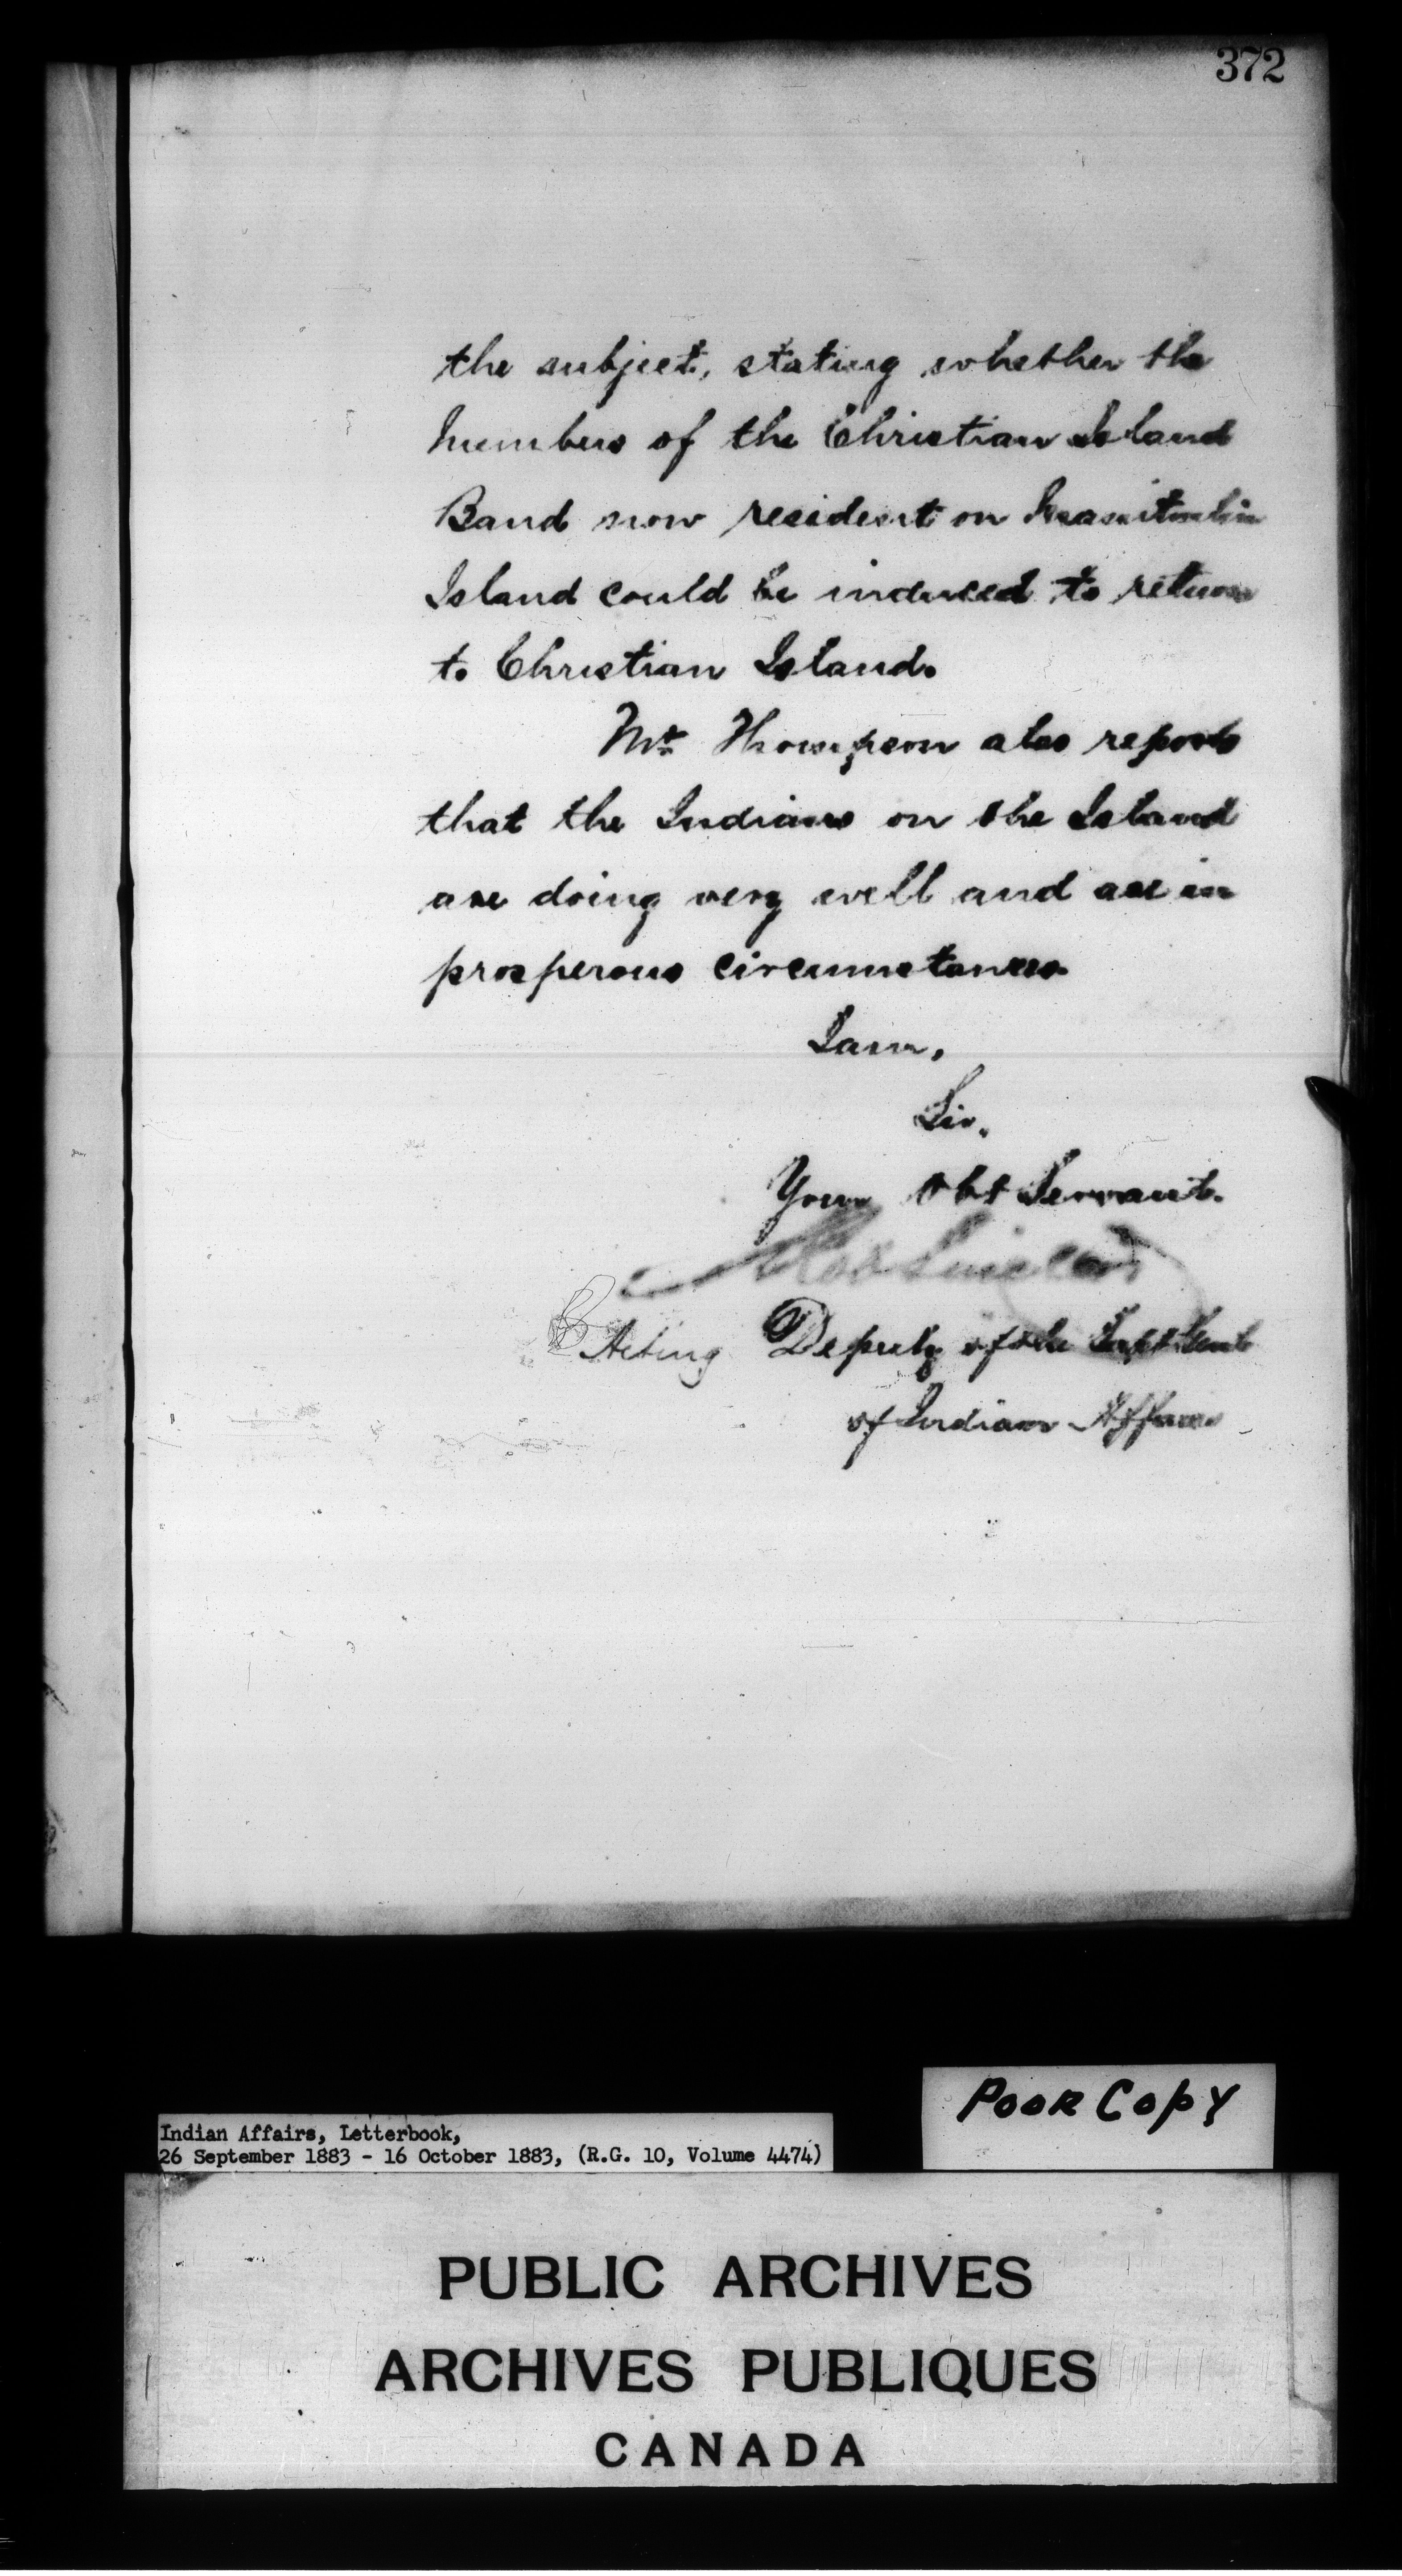 372
the subject, stating whether the
members of the Christian Island
Band now resident on Manitoulin
Island could be induced to return
to Christian Island.
Mr Thompson also reports
that the Indians on the Island
are doing very well and are in
prosperous circumstances.
I am,
Sir,
Your Obt Servant.
Acting Deputy of the Supt Genl
of Indian Affairs
POOR COPY
Indian Affairs, Letterbook,
26 September 1883 - 16 October 1883, (R.G. 10, Volume 4474)
PUBLIC ARCHIVES
ARCHIVES PUBLIQUES
CANADA